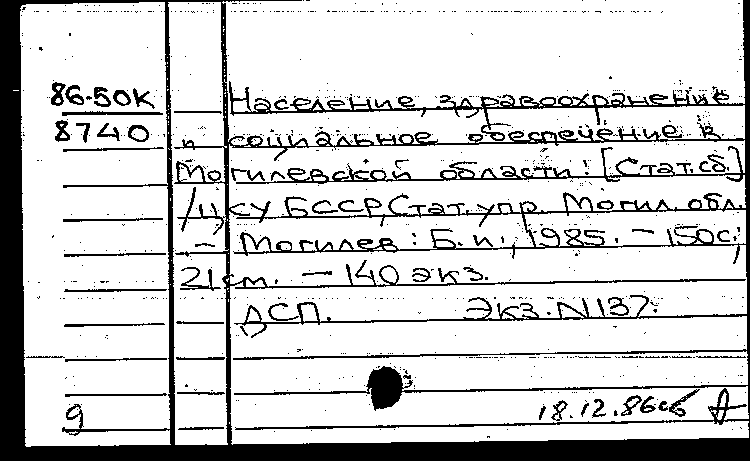 86-50К
8740
Население, здравоохранение
и социальное обеспечение в
Могилевской области: [Стат.сб.]
/ЦСУ БССР, Стат.упр. Могил. обл.
– Могилев: Б.и., 1985. – 150с.;
21см. – 140 экз.
ДСП. Экз.N137.
9
18.12.86сб